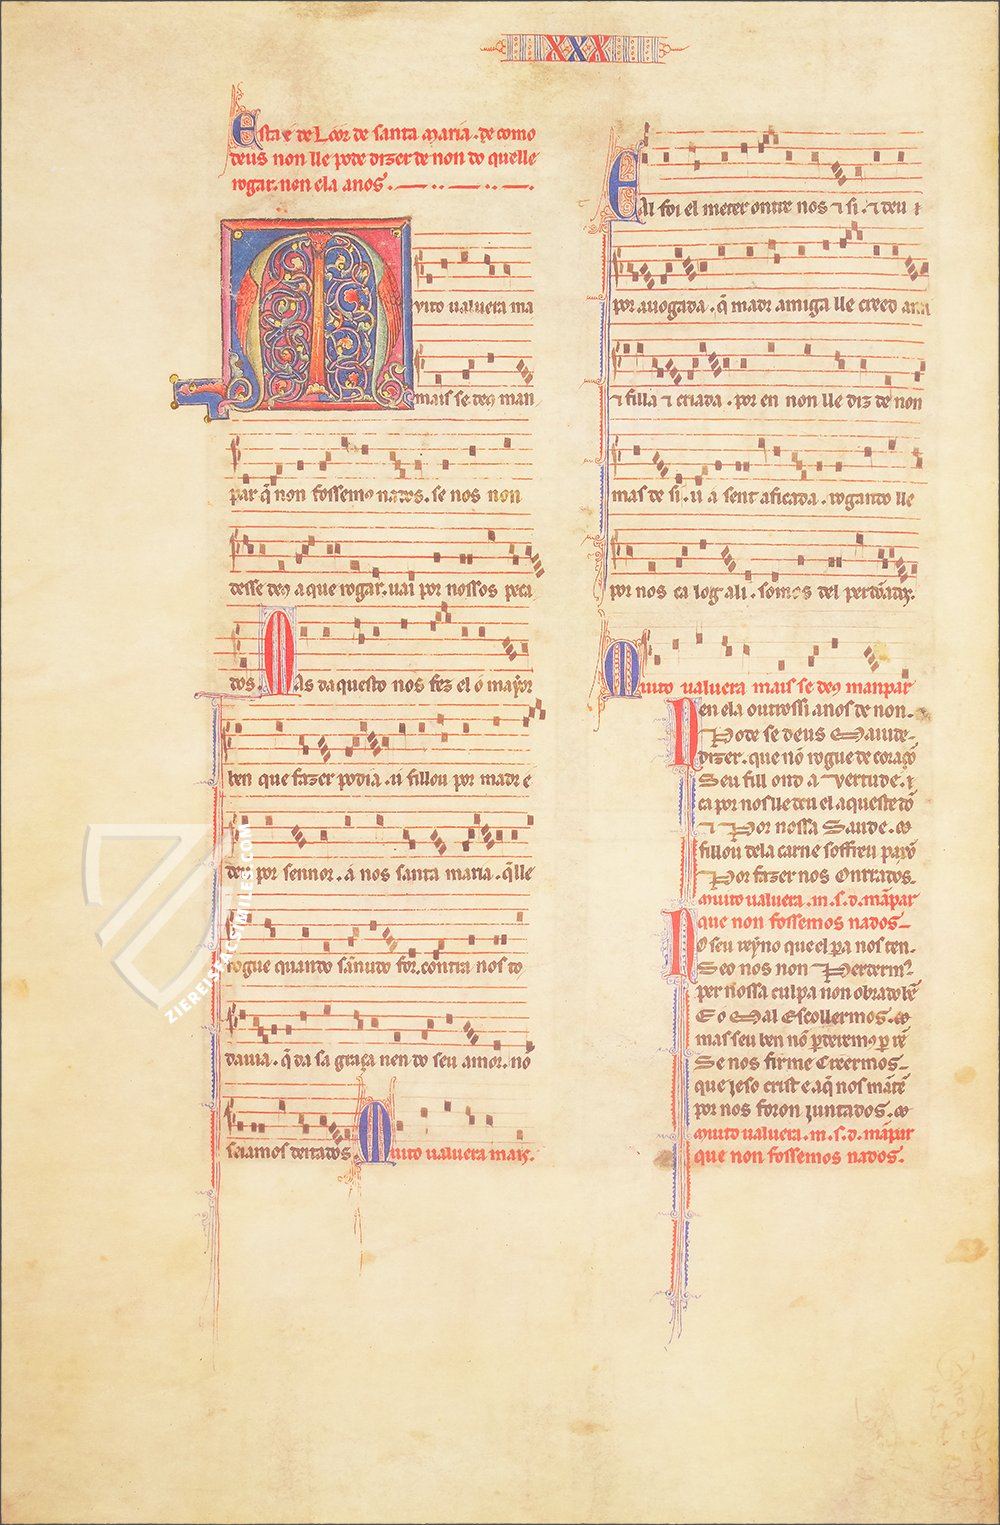 XXX
Esta é de Loor de santa maria. de como
deus non lle pode dizer de non do quelle
rogar. non ela anos.
Muito ualuera ma
mais se deus man
par q̄ non fossemꝰ nados. se nos non
desse deꝰ a que rogar. uai por nossos peca
dos. Mas daquesto nos fez el o mayor
ben que fazer podia. u fillou por madr e
deu por sennor. a nos santa maria. q̄lle
rogue quando sannudo for. contra nos to
dauia. q̄ da sa graça nen do seu amor. nō
seiamos deitados. Muito ualuera mais.
Eal foi el meter ontre nos ⁊ si. ⁊ deu
por auogada. q̄ madr amiga lle creed
⁊ filla ⁊ criada. por en non lle diz de non
mas de si. u a sent aficada. rogando lle
por nos ca log ali. somos del perdōadꝭ.
Muito ualuera mais se deꝰ manpar
Nen ela outrossi anos de non.
Pode se deus Maiude.
dizer. que nō rogue de coraçō
Seu fill ond a Vertude. ⁊
ca por nos lle deu el aqueste dō
⁊ Por nossa Saude.
fillou dela carne soffreu paxō
Por fazer nos Onrrados.
Muito ualuera. m. s. d. māpar
que non fossemos nados
No seu reẏno que el pera nos ten.
Se o nos non Perdermꝰ
per nossa culpa non obrādo bē
E o Mal Escollermos.
mas seu ben nō perderemꝰ per rē
Se nos firme Creermos
que jeso crist e aq̄ nos māte
por nos foron juntados.
Muito ualuera. m. s. d. māpar
que non fossemos nados.
ZIEREIS FACSIMILES.COM